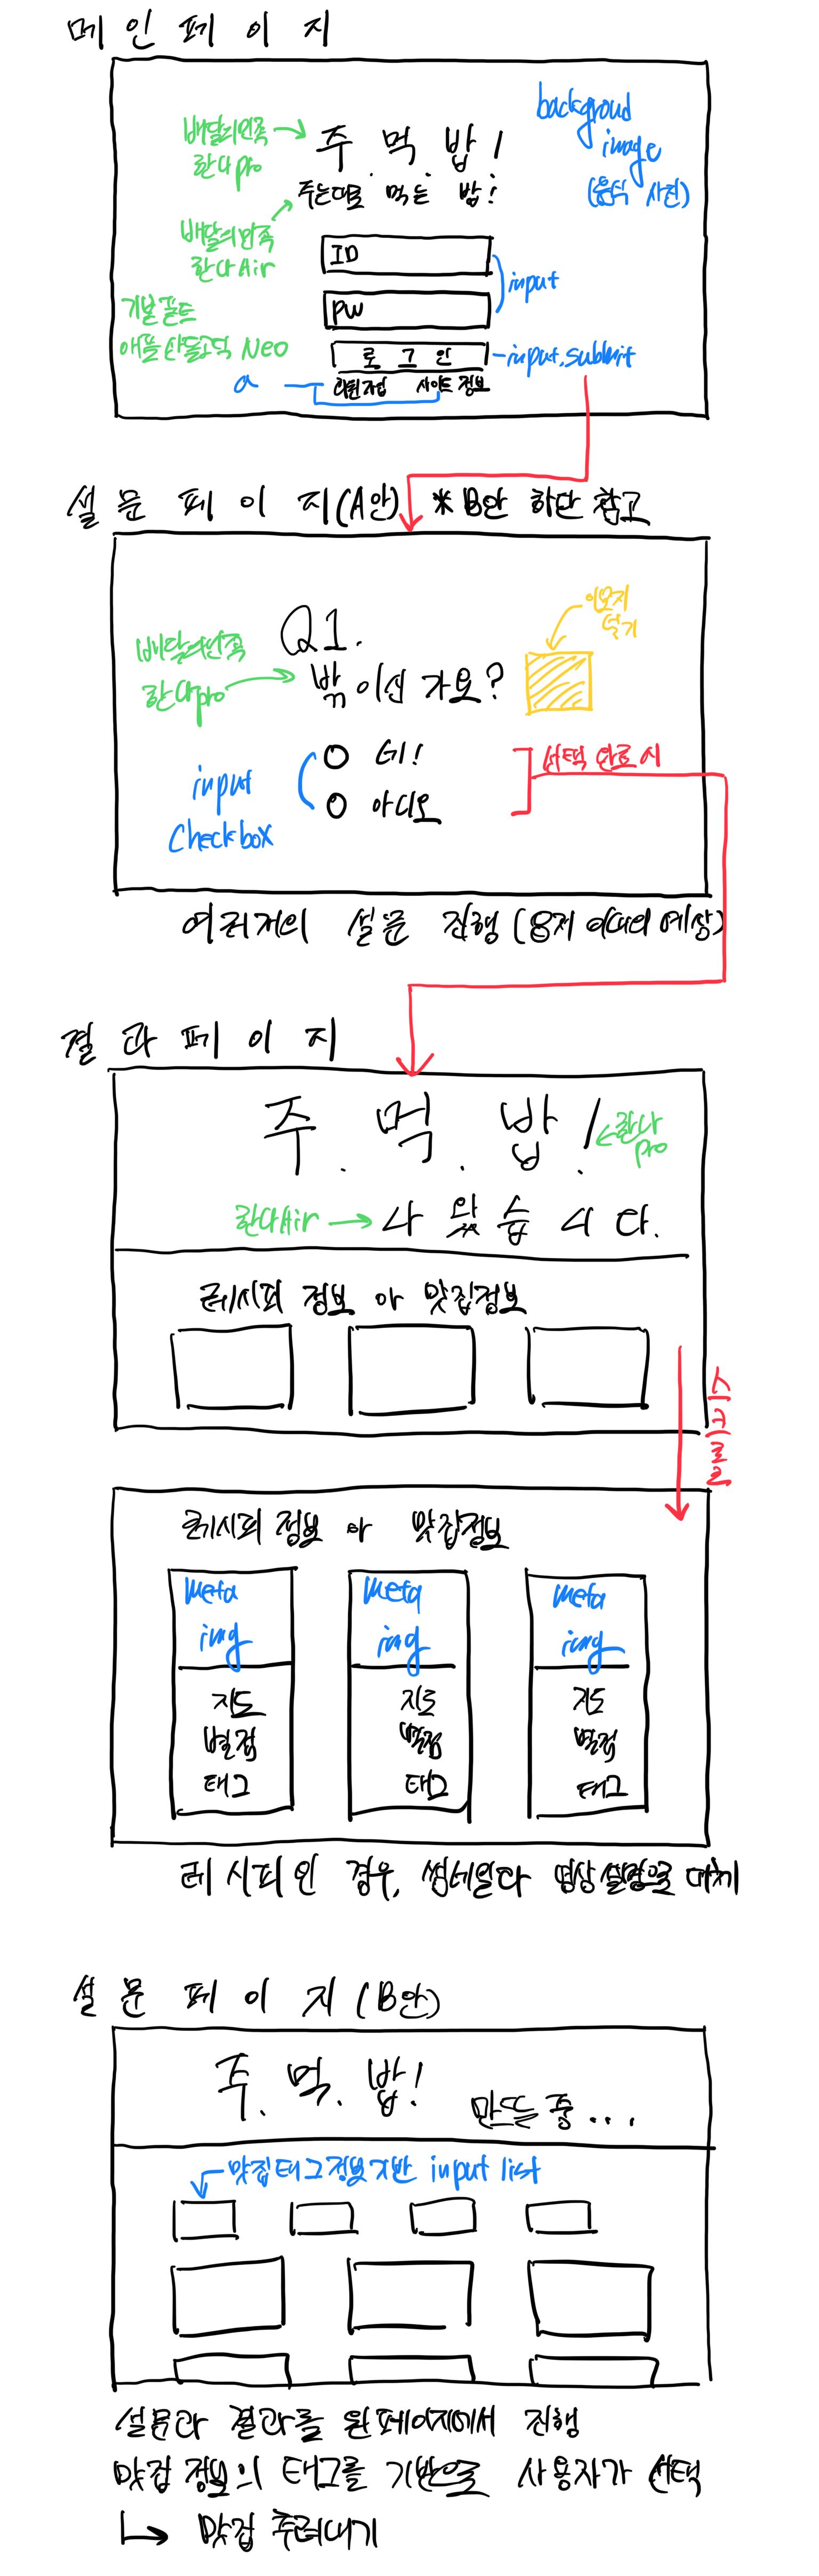 메인페이지
배달의민족
한나pro
주.먹.밥!
주는대로 먹는 밥!
backgroud
image
(음식 사진)
배달의민족
한나Air
기본폰트
애플산돌고딕 Neo
ID
PW
input
로그인
input.submit
a
회원가입 사이트 정보
설문페이지(A안) *B안 하단 참고
Q1.
밖이신가요?
배달의민족
한나pro
이모지
넣기
네!
아니오
input
checkbox
선택 완료 시
여러개의 설문 진행(8개 이내의 예상)
결과페이지
주.먹.밥!
한나
pro
한나Air
나왔습니다.
레시피 정보 or 맛집정보
스크롤
레시피 정보 or 맛집정보
meta
img
지도
별점
태그
meta
img
지도
별점
태그
meta
img
지도
별점
태그
레시피인 경우, 썸네일과 영상설명으로 대체
설문페이지(B안)
주.먹.밥!
만드는 중...
맛집태그정보기반 input list
설문과 결과를 원페이지에서 진행
맛집 정보의 태그를 기반으로 사용자가 선택
맛집 추려내기